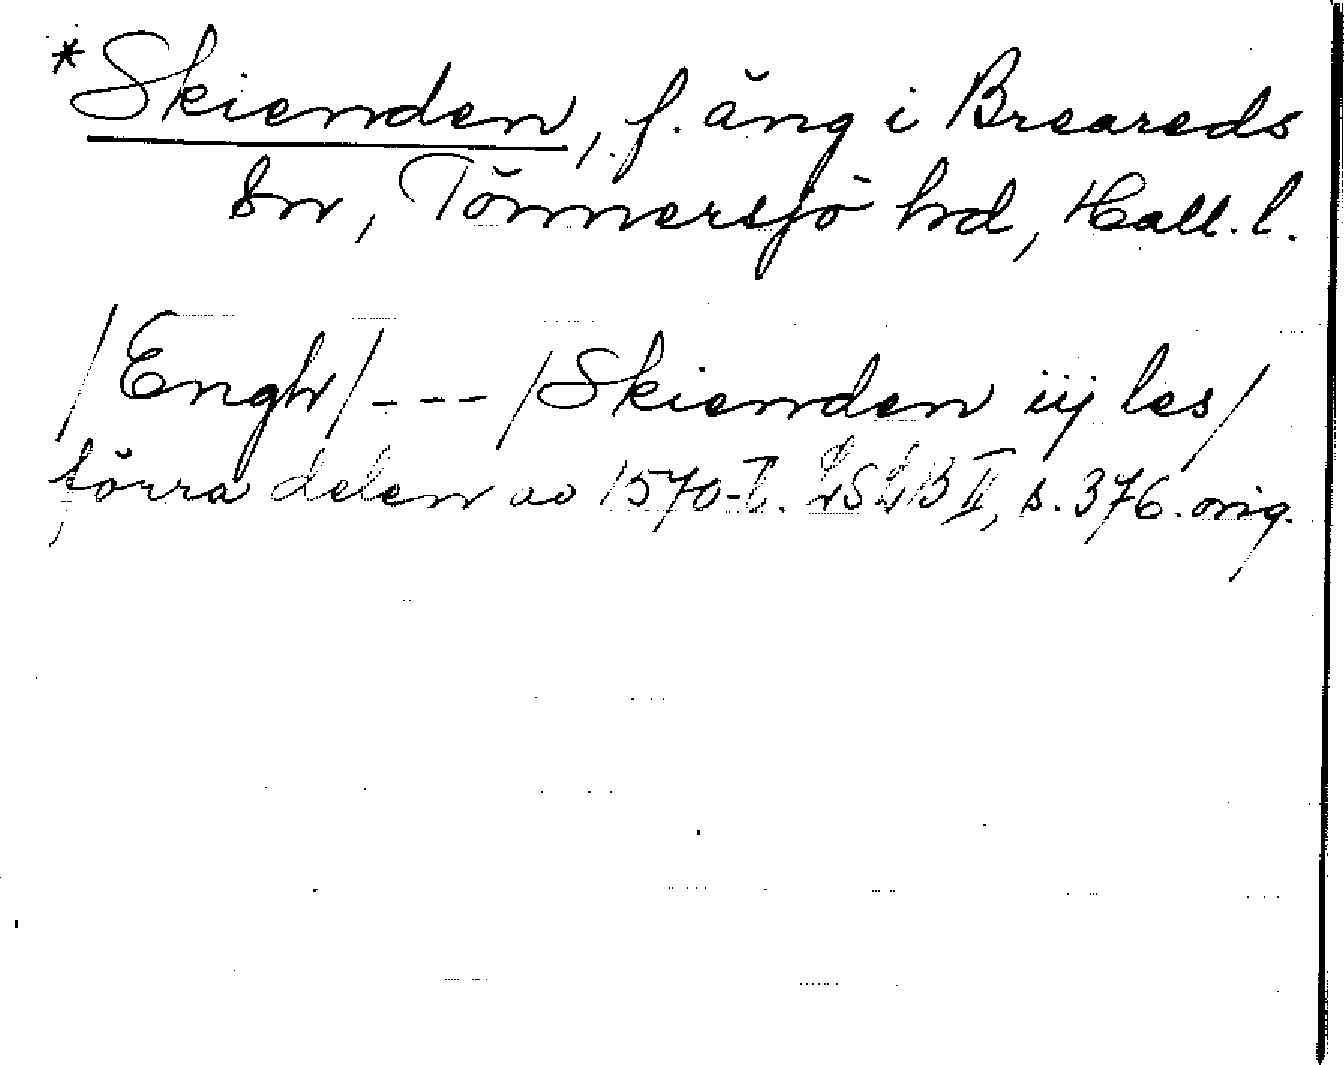 *Skienden, f. äng i Breareds
sn, Tönnersjö hd, Hall. l.
/Engh/ --- /Skienden iij les/
förra delen av 1570-t. LSLB II, s. 376. orig.